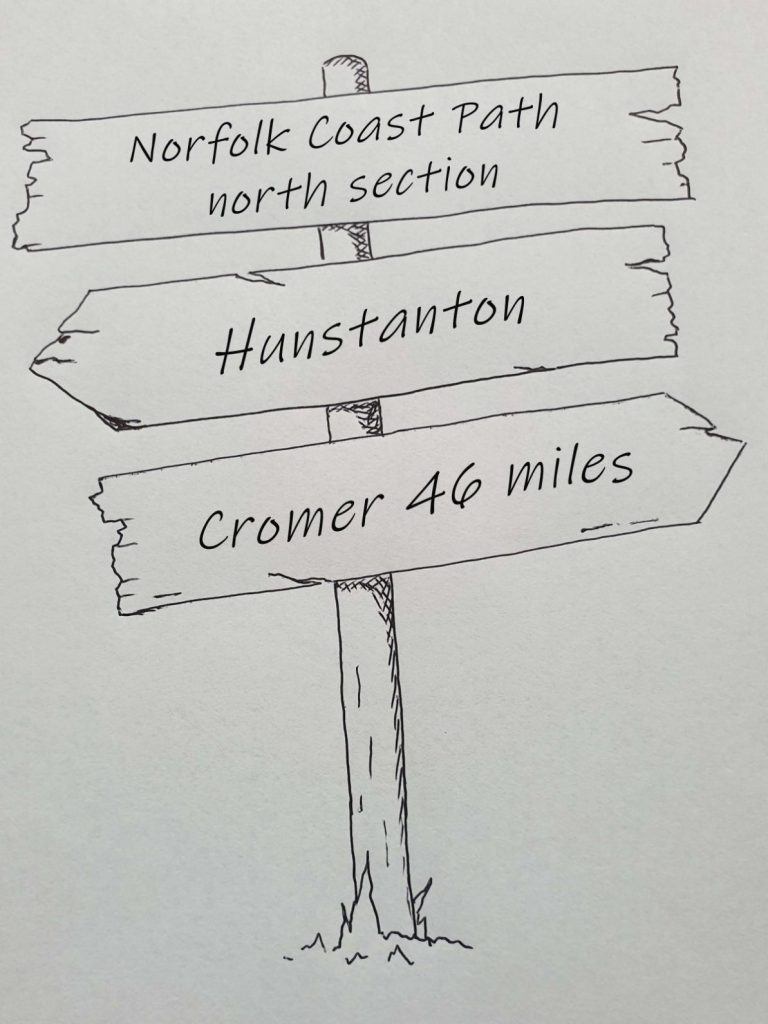 Norfolk Coast Path
north section
Hunstanton
Cromer 46 miles